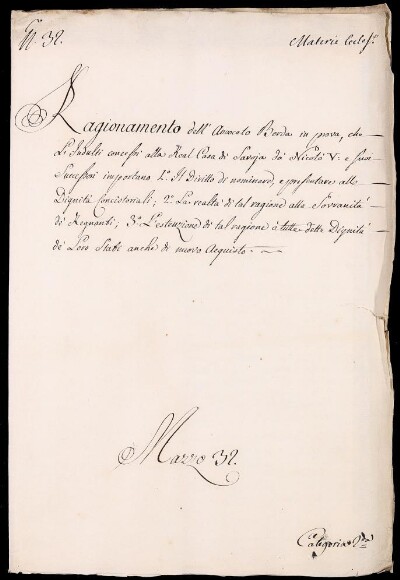 N. 32.
Materie Ecles.e
Ragionamento dell'Avvocato Borda in prova, che
Li Indulti concessi alla Real Casa di Savoja da Nicolò V: e suoi
Successori importano 1.o Il Diritto di nominare, e presentare alle
Dignità Concistoriali; 2.o La realtà di tal ragione alla Sovranità
de Regnanti; 3.o L'estenzione di tal ragione à tutte dette Dignità
de Loro Stati anche di nuovo Acquisto.
Mazzo 32.
Categoria P.ma